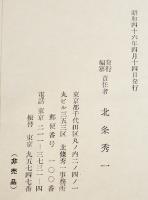 昭和四十六年四月十四日発行
発行
編纂 責任者 北条秀一
東京都千代田区丸ノ内二ノ四ノ一
丸ビル三五三区 北條秀一事務所
郵便番号 一〇〇番
電話 東京 二一一-三七三一-四
振替 東京 九五七四七番
(非売品)